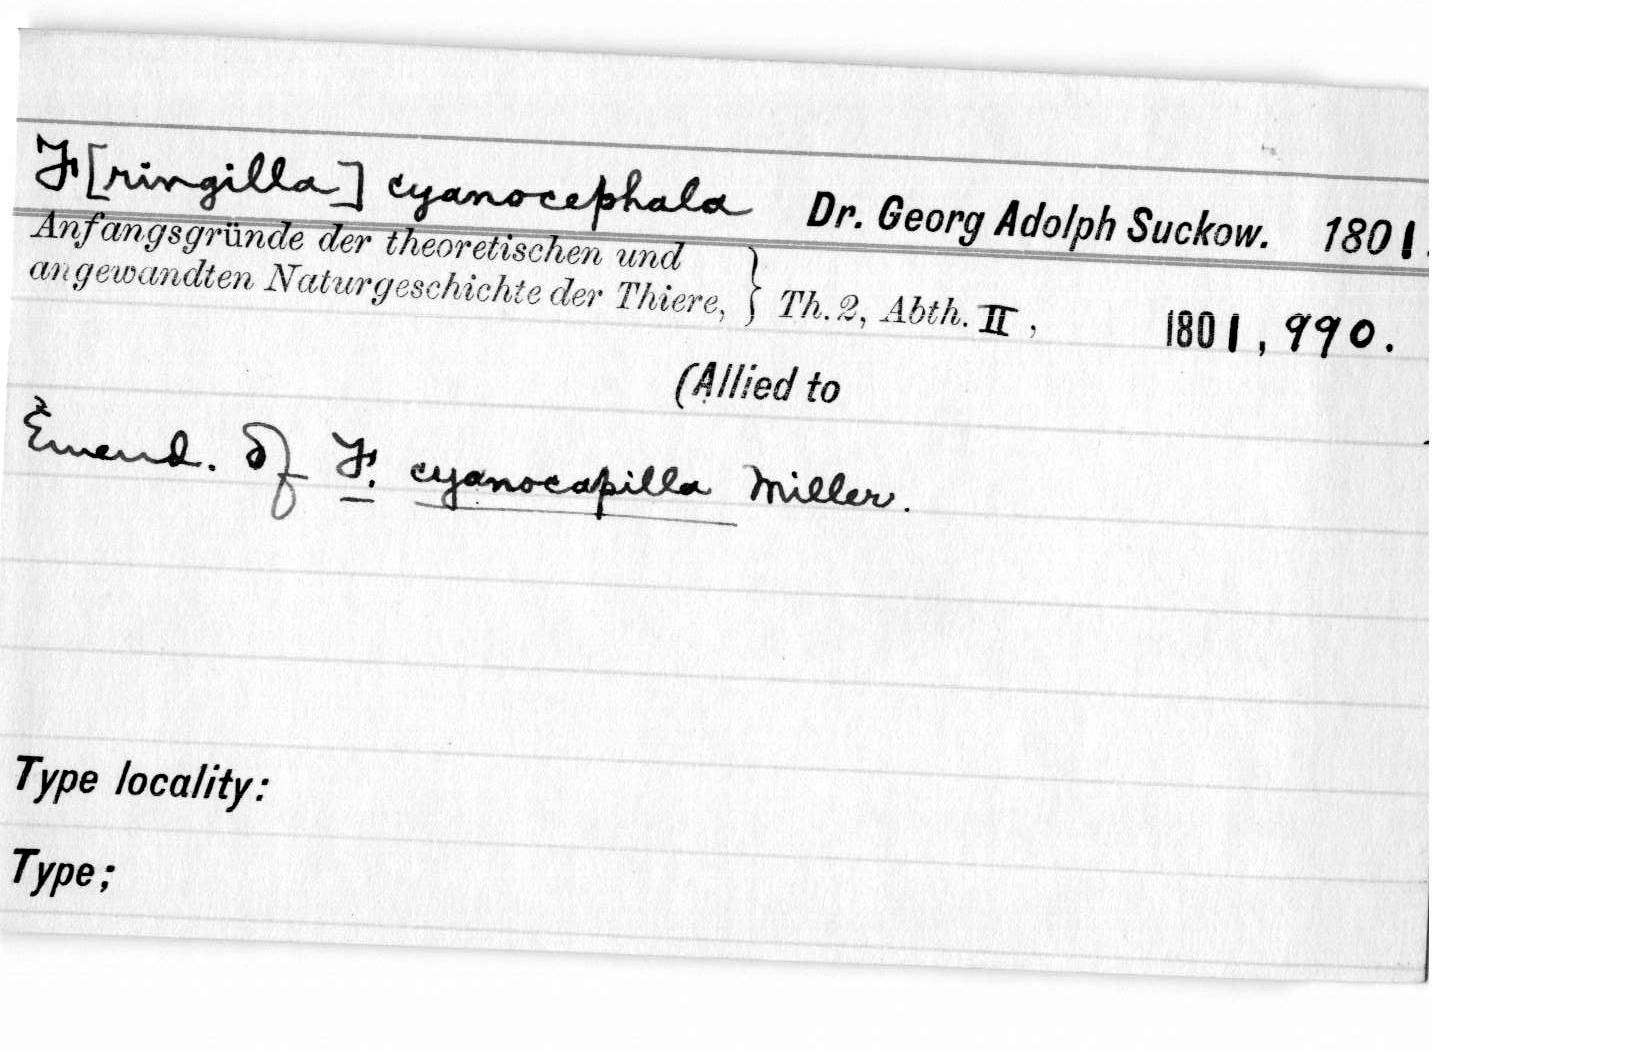 F[ringilla] cyanocephala Dr. Georg Adolph Suckow. 1801.
Anfangsgründe der theoretischen und
angewandten Naturgeschichte der Thiere, } Th. 2, Abth. II, 1801, 990.
(Allied to
Emend. of F. cyanocapilla Miller.
Type locality:
Type;